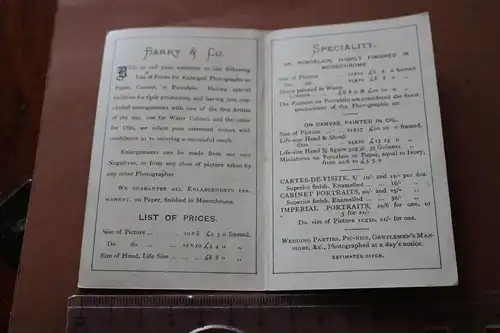 BARRY & CO.
BEG to call your attention to the following
List of Prices for Enlarged Photographs on
Paper, Canvas, or Porcelain. Having special
facilities for their production, and having just con-
cluded arrangements with two of the first Artists
of the day, one for Water Colours and the other
for Oils, we solicit your esteemed orders with
confidence as to meriting a successful result.
Enlargements can be made from our own
Negatives, or from any class of picture taken by
any other Photographer
WE GUARANTEE ALL ENLARGEMENTS PER-
MANENT, on Paper, finished in Monochrome.
LIST OF PRICES.
Size of Picture ... 10x8 £3 3 0 framed.
Do. do. ... ... 12x10 £4 4 0 "
Size of Head, Life Size ... £8 8 0 "
SPECIALITY.
ON PORCELAIN, HIGHLY FINISHED IN
MONOCHROME.
Size of Picture ... 12x10 £6 6 0 framed
Do. do. ... 15x12 £8 8 0 "
Ditto painted in Water
Colours. £8 8 0 & £10 10 0 "
The Pictures on Porcelain are considered the finest
productions of the Photographic art.
ON CANVAS, PAINTED IN OIL.
Size of Picture ... 21x17 £10 10 0 framed.
Life-size Head & Should-
ers ... 24x20 £15 15 0 "
Life-size Half figure 30x36 25 Guineas. "
Miniatures on Porcelain or Paper, equal to Ivory,
from 10/6 to £5 5 0
CARTES-DE-VISITE, 8/ 10/- and 12/- per doz.
Superior finish. Enamelled ... 16/- "
CABINET PORTRAITS, and 21/- "
Superior finish. Enamelled ... 30/- "
IMPERIAL PORTRAITS, 10/6 for one, or
3 for 21/-
Do. size of Picture 12x10, 21/- for one.
WEDDING PARTIES, PIC-NICS, GENTLEMEN'S MAN-
SIONS, &C., Photographed at a day's notice.
ESTIMATES GIVEN.